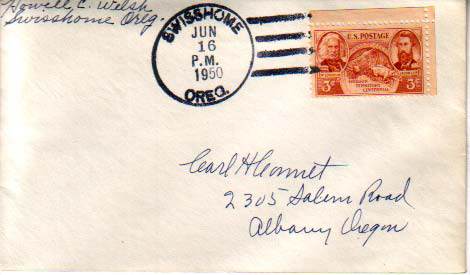 Howell C. Welsh
Swisshome Oreg.
SWISSHOME
JUN
16
P.M.
1950
OREG.
U.S. POSTAGE
3¢ 3¢
OREGON
TERRITORY
CENTENNIAL
Carl H
2305 Salem Road
Albany Oregon